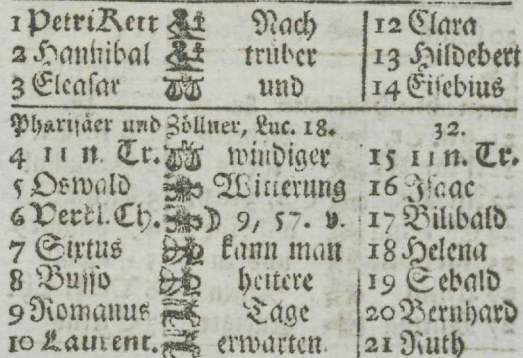 1 Petri Kett Nach 12 Clara
2 Hannibal trüber 13 Hildebert
3 Eleasar und 14 Eusebius
Pharisäer und Zöllner, Luc. 18. 32.
4 11 n. Tr. windiger 15 11 n. Tr.
5 Oswald Witterung 16 Isaac
6 Verkl. Ch. ☽ 9, 57. v. 17 Bilibald
7 Sixtus kann man 18 Helena
8 Busso heitere 19 Sebald
9 Romanus Tage 20 Bernhard
10 Laurent. erwarten. 21 Ruth